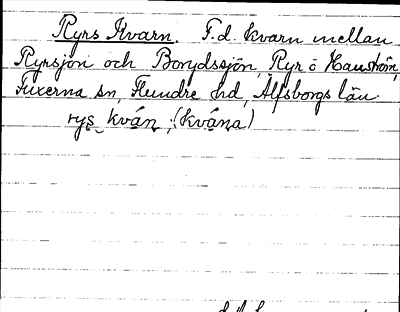 Ryrs Kvarn. F.d. kvarn mellan
Ryrsjön och Borydssjön, Ryr ö
Fuxerna sn, Flundre hd, Älfsborgs län
rys kván, (kvána)